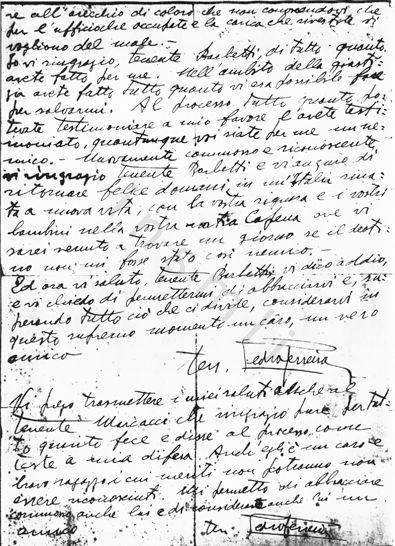 re all'orecchio di coloro che non comprendono, che
per l'ufficio che occupate e la carica che rivestite vi
vogliono del male.-
Io vi ringrazio, tenente Barbetti, di tutto quanto
avete fatto per me. Nell'ambito della giusti-
zia avete fatto tutto quanto vi era possibile fare
per salvarmi. Al processo, tutto quanto po-
tevate testimoniare a mio favore l'avete testi-
moniato, quantunque voi siate per me un ne-
mico.- Nuovamente commosso e riconoscente
vi ringrazio tenente Barbetti e vi auguro di
ritornare felice domani, in un'Italia rina-
ta a nuova vita, con la vostra signora e i vostri
bambini nella vostra Capena ove vi
sarei venuto a trovare un giorno se il desti-
no non mi fosse stato così nemico.-
Ed ora vi saluto, tenente Barbetti, vi dico addio,
e vi chiedo di permettermi di abbracciarvi e, su-
perando tutto ciò che ci divide, considerarvi in
questo supremo momento un caro, un vero
amico
ten. Pedro Ferreira
Vi prego trasmettere i miei saluti anche al
tenente che ringrazio pure per tut-
to quanto fece e disse al processo come
teste a mia difesa. Anche egli è un caro e
bravo ragazzo i cui meriti non potranno non
essere riconosciuti. Mi permetto di abbracciare
commosso anche lui e di considerare anche lui un
amico
ten Pedro Ferreira